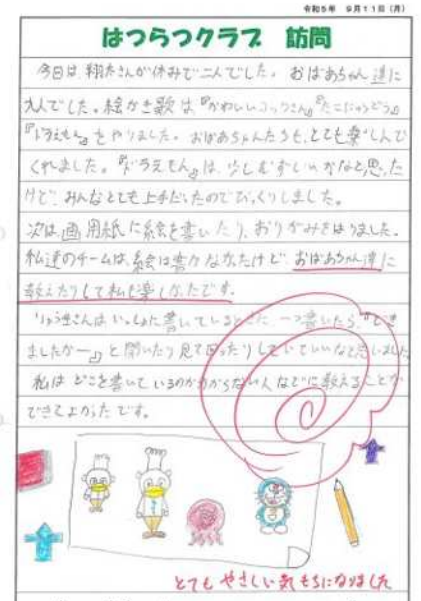 令和5年 9月11日(月)
はつらつクラブ 訪問
今日は、翔たさんが休みで二人でした。おばあちゃん達に
九人でした。絵かき歌は『かわいいコックさん』『たこにゅうどう』
『ドラえもん』をやりました。おばあちゃんたちも、とても楽しんで
くれました。『ドラえもん』は、少しむずしいかなと思った
けど、みんなとても上手だったのでびっくりしました。
次は、画用紙に絵を書いたり、おりがみをはりました。
私達のチームは、絵は書かなかったけど、おばあちゃん達に
教えたりして私も楽しかったです。
さんはいっしょに書いているときに、一つ書いたら、『でき
ましたかー』と聞いたり見て回ったりしていていいなと思いました
私は どこを書いているのかわからない人などに教えることが
できてよかったです。
とても やさしい気もちになりました